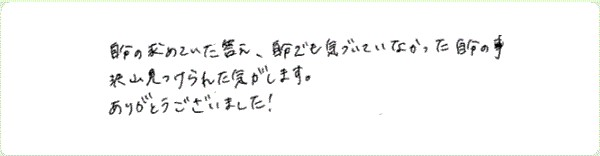 自分の求めていた答え、自分でも気づいていなかった自分の事
沢山見つけられた気がします。
ありがとうございました!